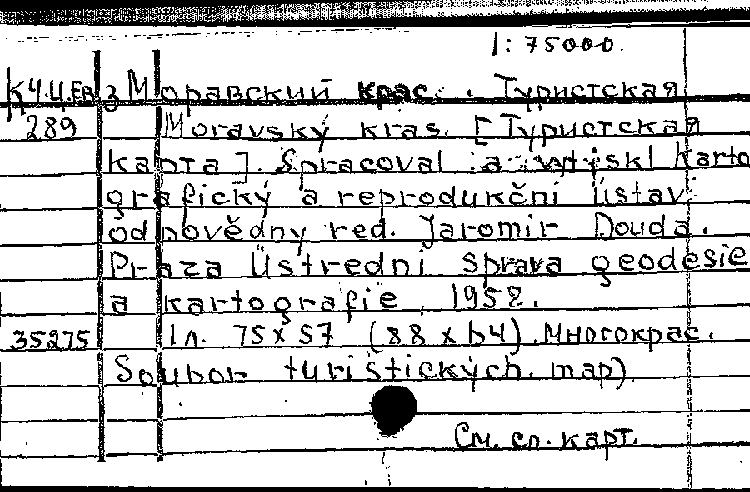 1: 75000.
К4.Ц.Ев з Моравский крас. . Туристская
289 Moravský kras. [Туристская
карта]. Spracoval a vytiskl karto
grafický a reprodukční ústav
odpovědny red. Jaromir Douda.
Praza Ustredni sprava geodesie
a kartografie, 1958.
35275 1л. 75x57 (88x64). Многокрас.
Soubor turistických map)
См. сл. карт.